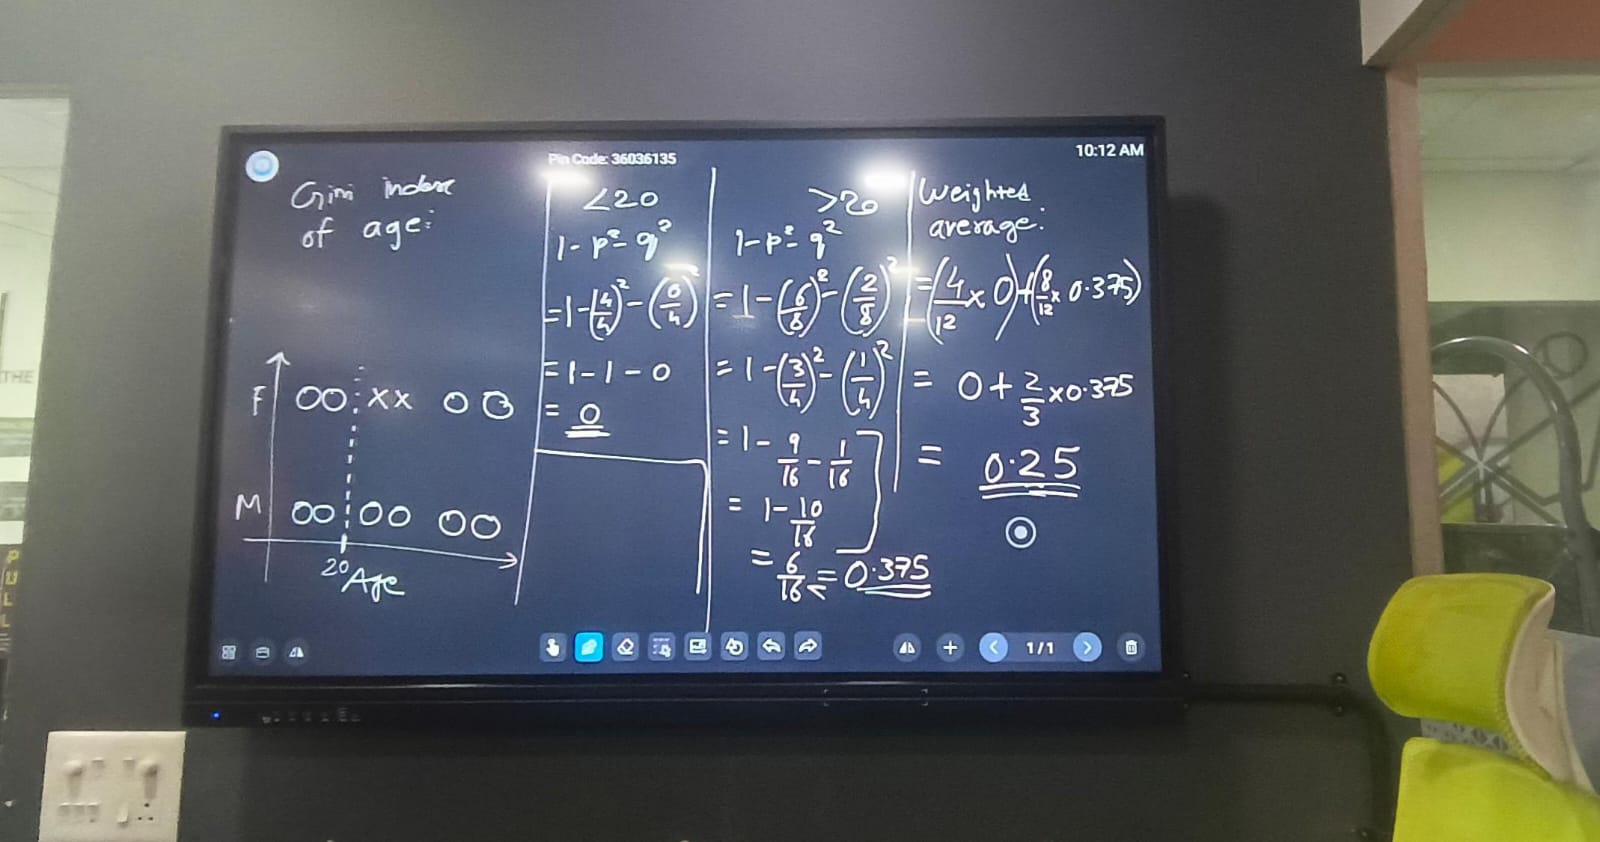 Pin Code: 36036135
10:12 AM
Gini index
of age:
F OO XX OO
M OO OO OO
20
Age
<20
1-p²-q²
=1-(4/4)²-(0/4)²
=1-1-0
=0
>20
1-p²-q²
=1-(6/8)²-(2/8)²
=1-(3/4)²-(1/4)²
=1-9/16-1/16
=1-10/16
=6/16=0.375
Weighted
average.
=(4/12×0)+(8/12×0.375)
=0+2/3×0.375
=0.25
1/1
THE
P
U
L
L